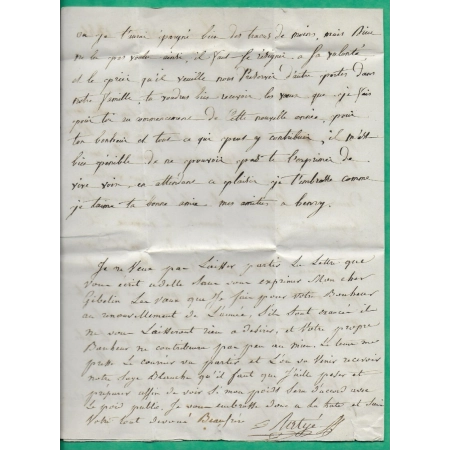 bien des travaux de moins, mais Dieu
ne l'a pas voulu ainsi, il faut se résigner a sa volonté,
et le prier qu'il veuille nous préserver d'autre pertes dans
notre famille, tu voudras bien recevoir les voeux que je fais
pour toi au renouvellement de cette nouvelle année, pour
ton bonheur et tout ce qui peut y contribuer, il m'est
bien pénible de ne pouvoir pas te l'exprimer de
vive voix, en attendant ce plaisir je t'embrasse comme
je t'aime ta bonne amie mes amitiés a henry.
Je ne Veux pas Laisser partir La Lettre que
Vous écrit adelle Sans vous exprimer Mon cher
Les vœux que Je fais pour votre Bonheur
au renouvellement de L'année. S'ils sont exaucés il
ne vous Laisseront rien a desirer, et Votre propre
Bonheur ne contribuera pas peu au mien. Le tems me
presse le courrier va partir et L'on va Venir recevoir
notre Soye Blanche qu'il faut que J'aille peser et
preparer affin de voir Si mon poids sera d'accord avec
le poid public. Je vous embrasse donc a la hate et suis
Votre tout devoué Beaufrere